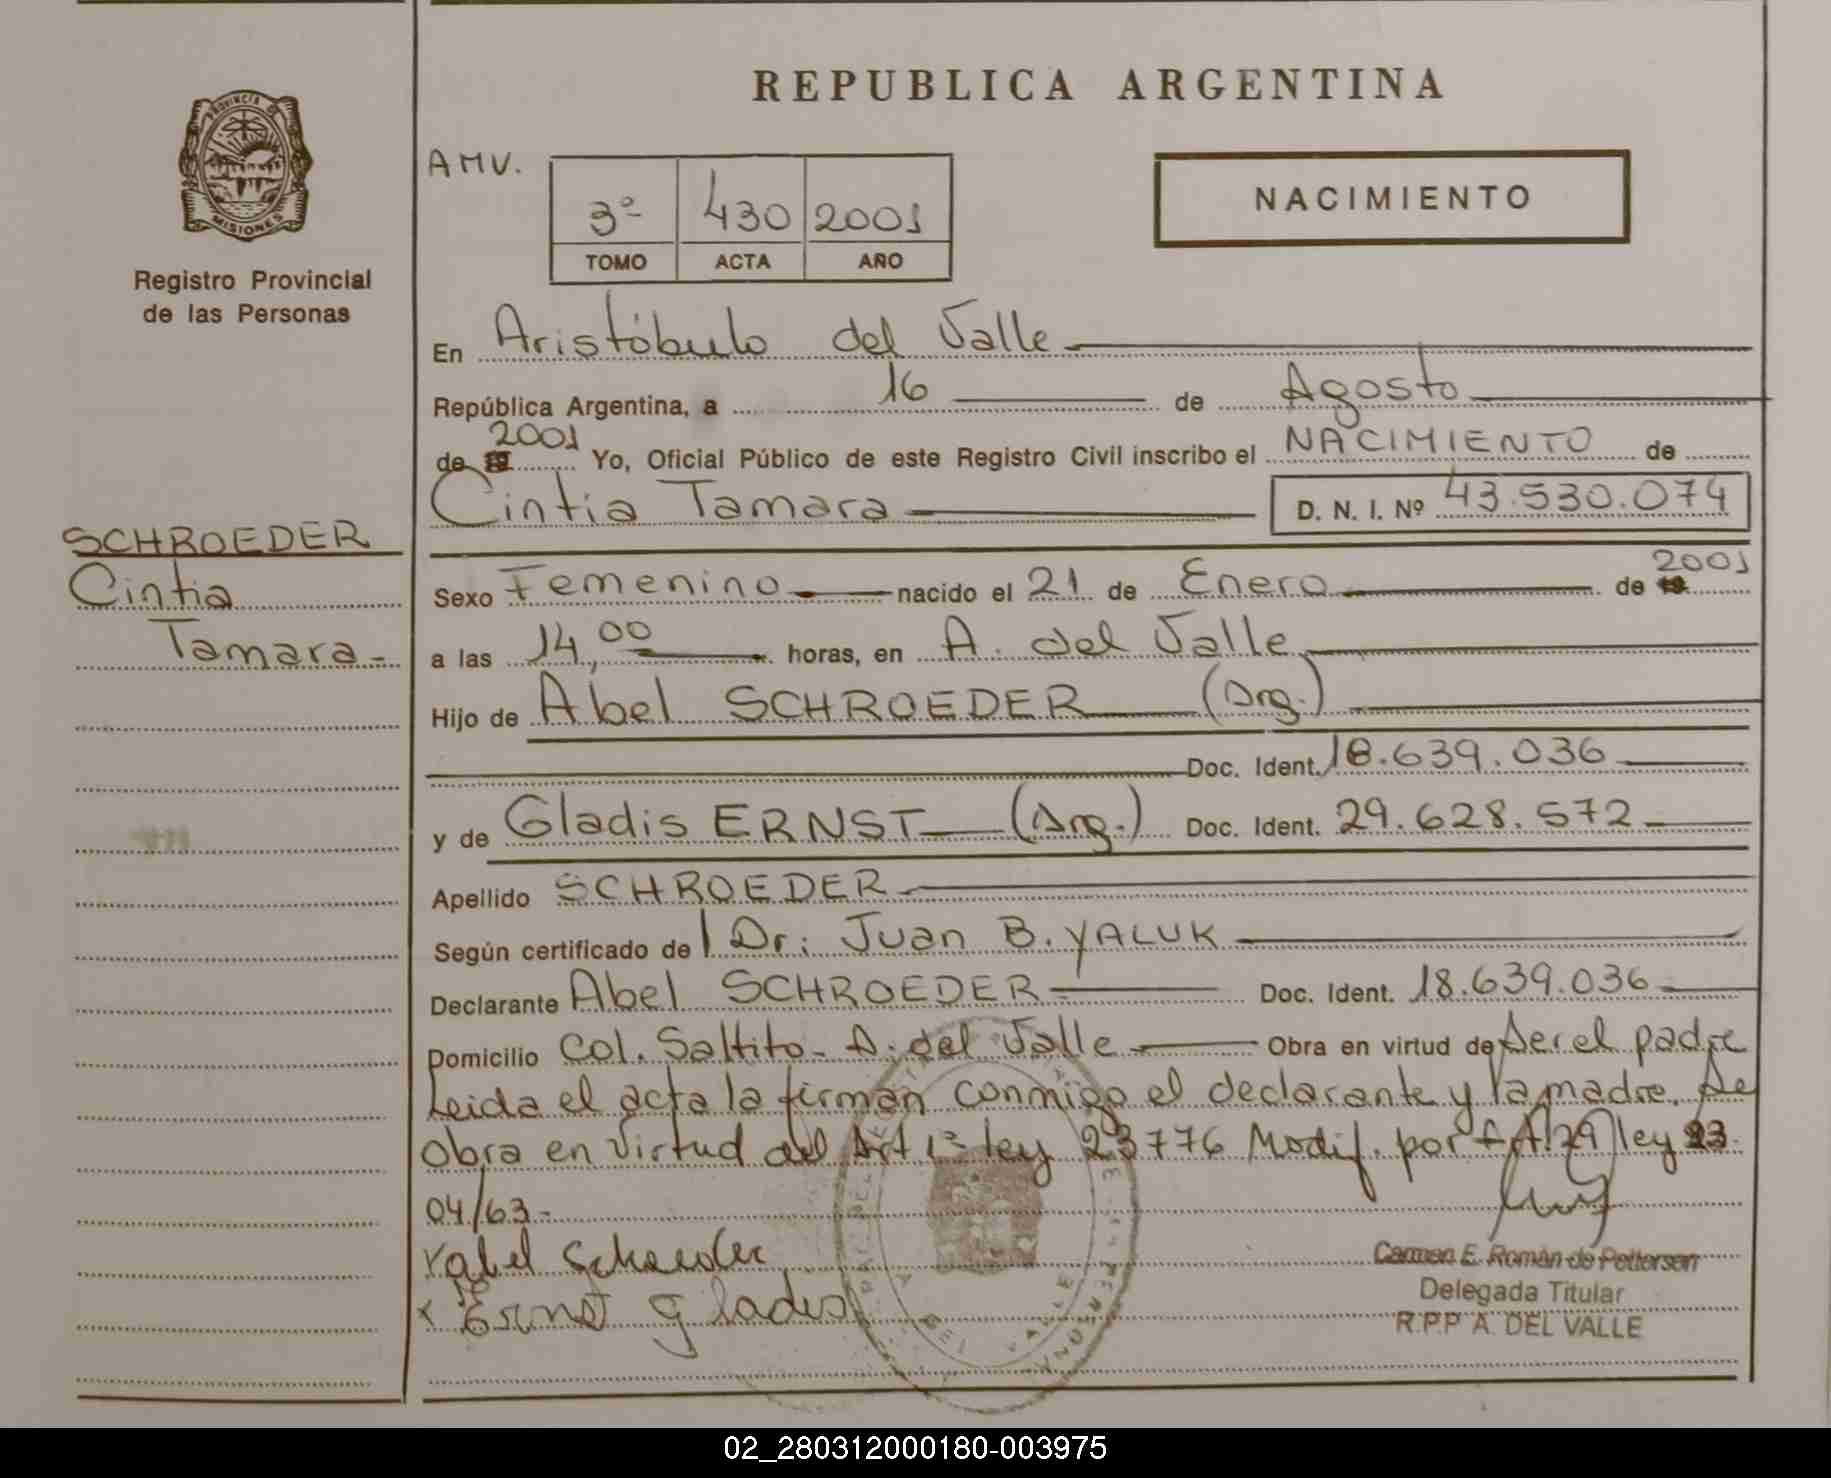 REPUBLICA ARGENTINA
PROVINCIA DE
MISIONES
Registro Provincial
de las Personas
AMV.
3º 430 2001
TOMO ACTA AÑO
NACIMIENTO
En Aristóbulo del Valle
República Argentina, a 16 de Agosto
de 2001 Yo, Oficial Público de este Registro Civil inscribo el NACIMIENTO de
Cintia Tamara D. N. I. Nº 43.530.074
SCHROEDER
Cintia
Tamara-
Sexo Femenino nacido el 21 de Enero de 2001
a las 14,00 horas, en A. del Valle
Hijo de Abel SCHROEDER (Arg.)
Doc. Ident. 18.639.036
y de Gladis ERNST (Arg.) Doc. Ident. 29.628.572
Apellido SCHROEDER
Según certificado de Dr: Juan B. YALUK
Declarante Abel SCHROEDER Doc. Ident. 18.639.036
Domicilio Col. Saltito- A. del Valle Obra en virtud de Ser el padre
Leida el acta la firman conmigo el declarante y la madre. Se
obra en Virtud del Art 1º ley 23776 Modif. por Art. 29 ley
04/63-
Abel Schroeder
x Ernst gladis
Carmen E. Román de Pettersen
Delegada Titular
R.P.P A. DEL VALLE
02_280312000180-003975